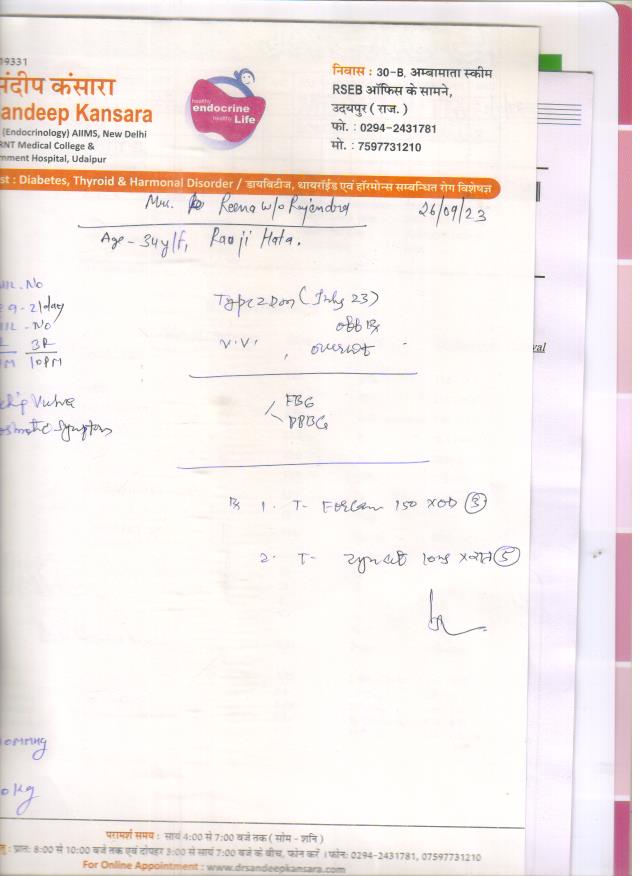 19331
संदीप कंसारा
andeep Kansara
(Endocrinology) AIIMS, New Delhi
RNT Medical College &
rnment Hospital, Udaipur
healthy
endocrine
healthy Life
निवास : 30-B, अम्बामाता स्कीम
RSEB ऑफिस के सामने,
उदयपुर ( राज. )
फो. : 0294-2431781
मो. : 7597731210
st : Diabetes, Thyroid & Harmonal Disorder / डायबिटीज, थायरॉईड एवं हॉरमोन्स सम्बन्धित रोग विशेषज्ञ
Mrs. Reena w/o Rajendra 26/09/23
Age - 34y/F, Raoji Hata.
No
day
- No
3R
10PM
Vulva
Symptoms
Type 2 (July 23)
off Rx
V.V. , overwt
FBG
PPBG
Rx 1. T- Forcan 150 x OD 3
2. T- 10mg x रात 5
kg
परामर्श समय : सायं 4:00 से 7:00 बजे तक ( सोम - शनि )
तु : प्रात: 8:00 से 10:00 बजे तक एवं दोपहर 3:00 से सायं 7:00 बजे के बीच, फोन करें । फोन: 0294-2431781, 07597731210
For Online Appointment : www.drsandeepkansara.com
val